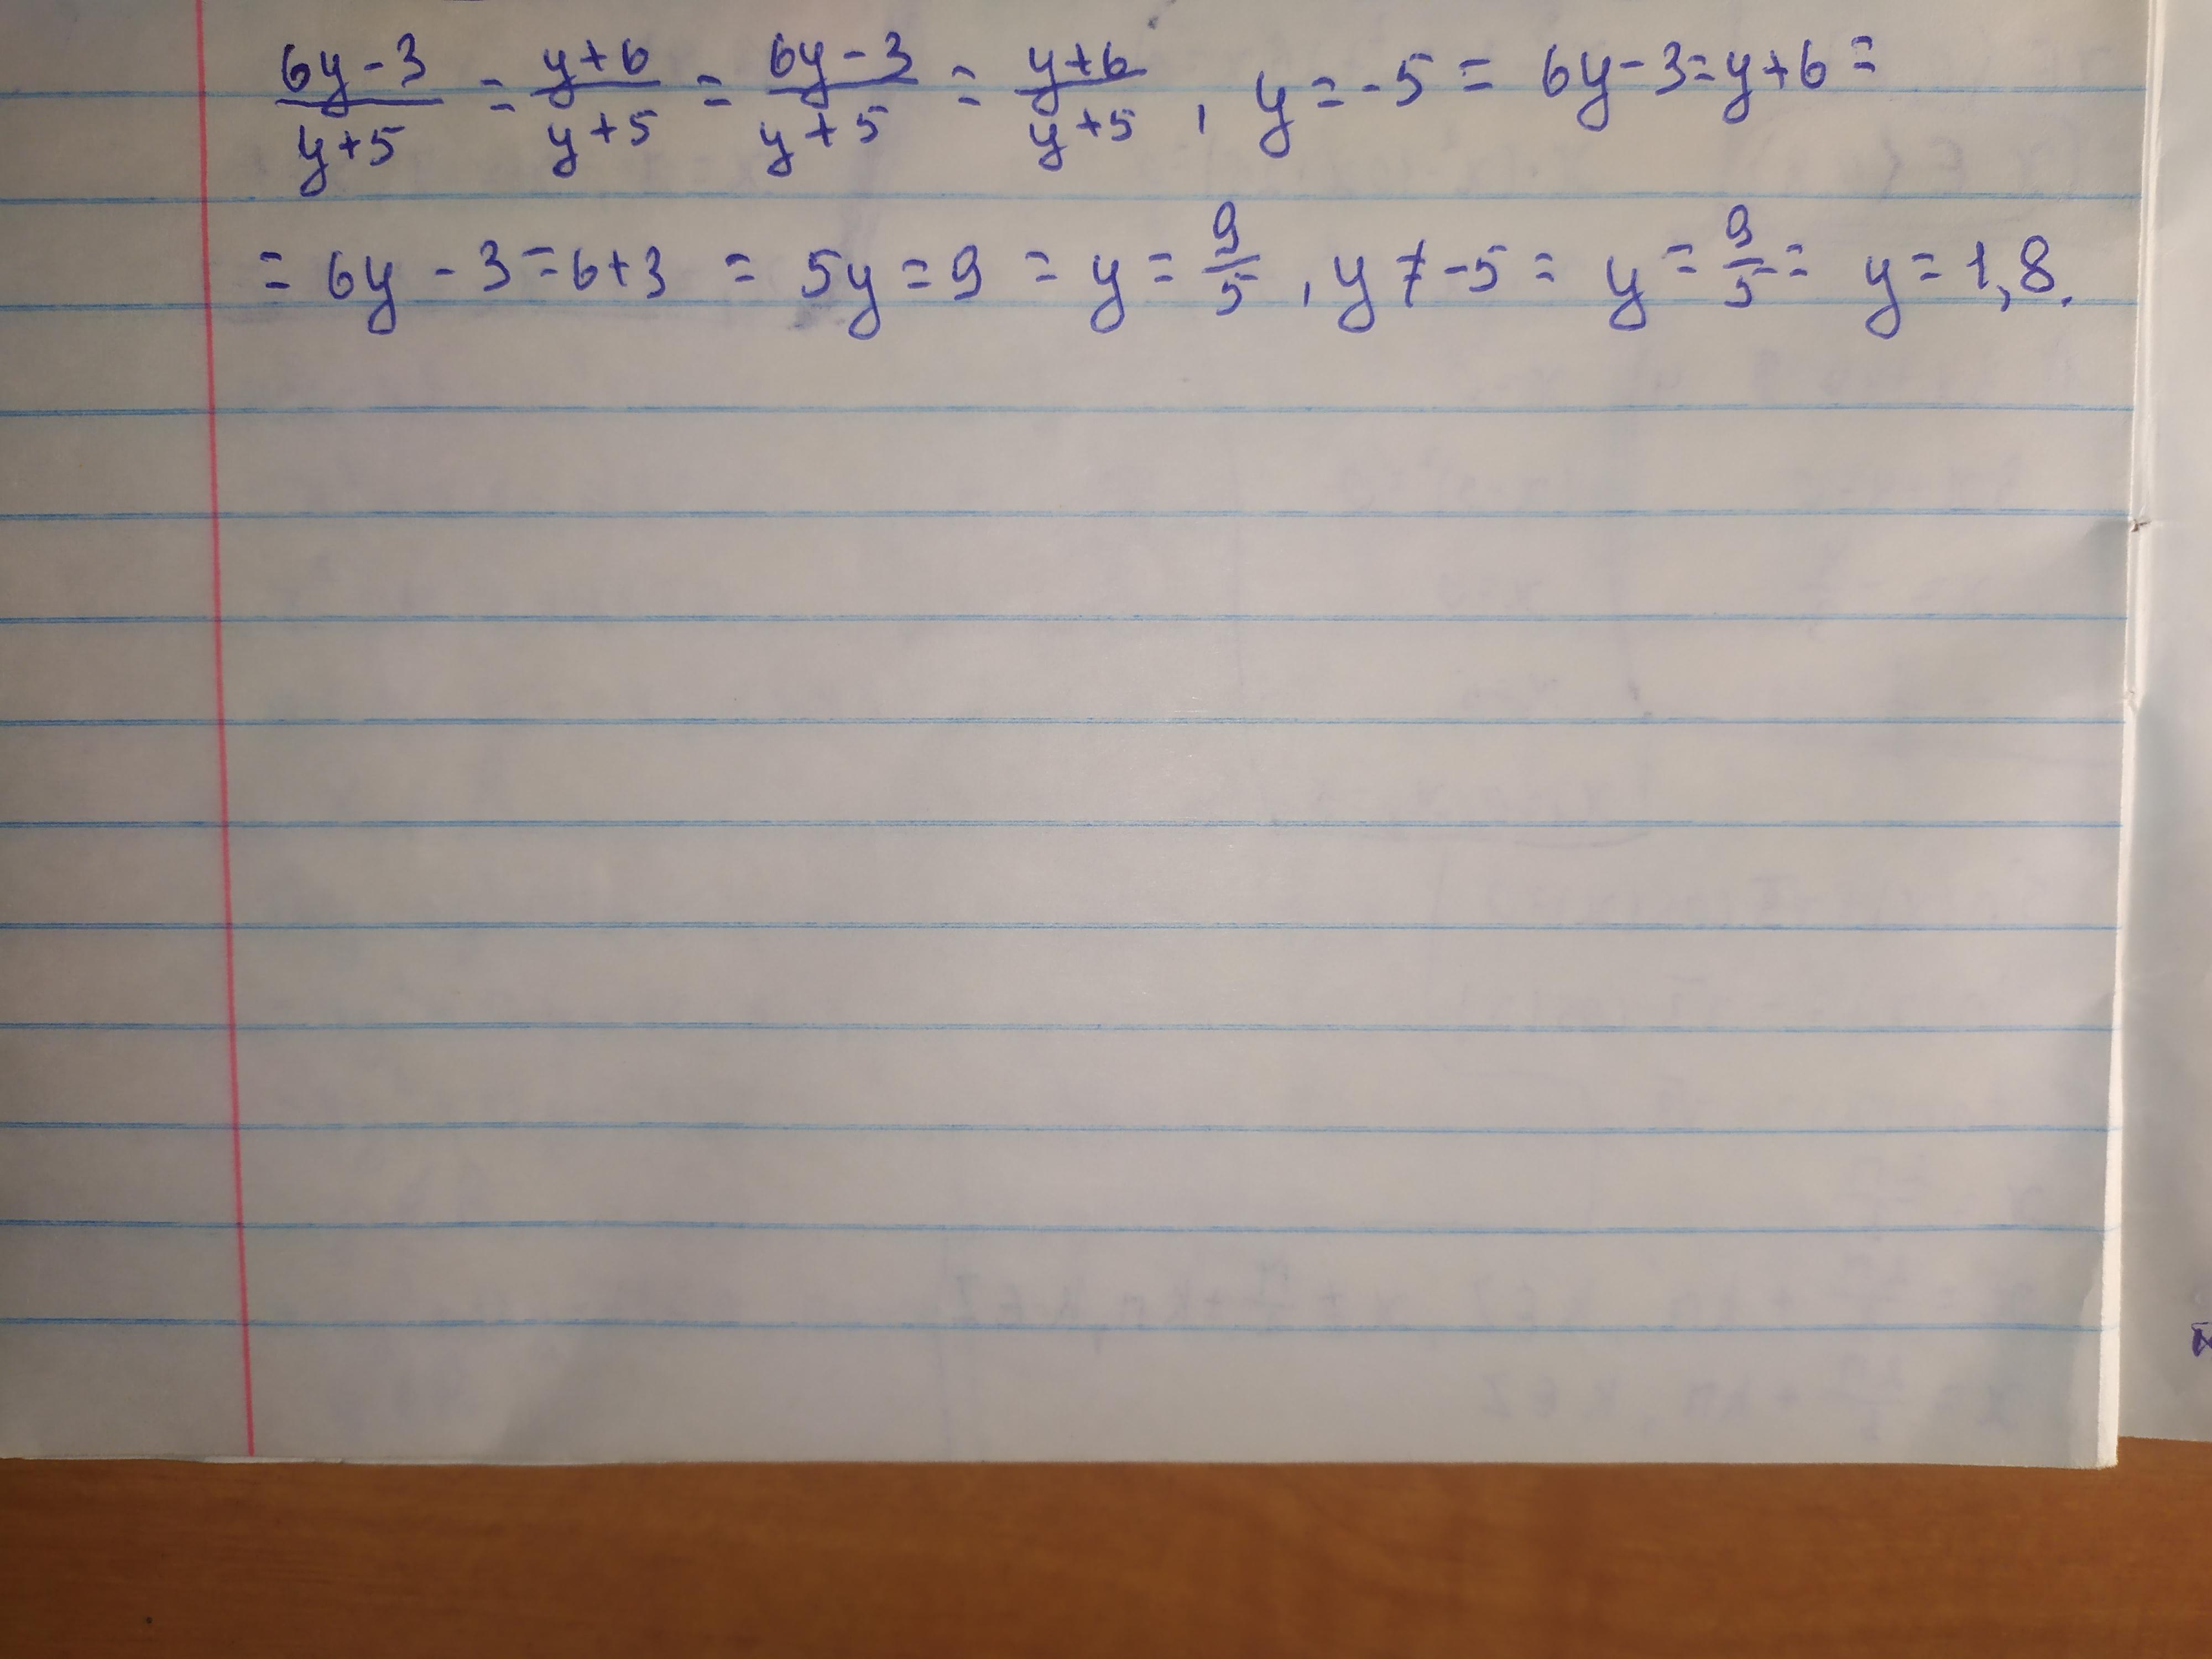 (6y-3)/(y+5) = (y+6)/(y+5) = (6y-3)/(y+5) = (y+6)/(y+5), y=-5 = 6y-3=y+6=
= 6y-3=6+3 = 5y=9 = y=9/5, y≠-5= y=9/5= y=1,8.